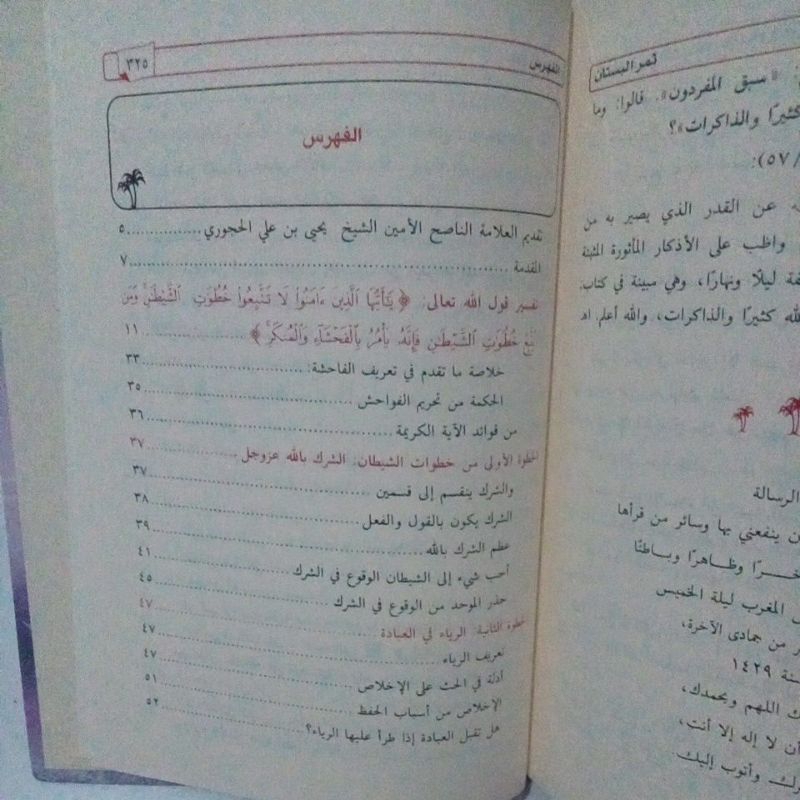 ثمر البستان
«سبق المفردون». قالوا: وما
كثيرًا والذاكرات»؟
٥٧):
عن القدر الذي يصير به من
واظب على الأذكار المأثورة المثبتة
ليلًا ونهارًا، وهي مبينة في كتاب
كثيرًا والذاكرات، والله أعلم. اهـ
الرسالة
ينفعني بها وسائر من قرأها
وظاهرًا وباطنًا
المغرب ليلة الخميس
من جمادى الآخرة،
١٤٢٩
اللهم وبحمدك،
أن لا إله إلا أنت،
وأتوب إليك.
الفهرس
٣٢٥
الفهرس
تقديم العلامة الناصح الأمين الشيخ يحيى بن علي الحجوري ............ ٥
المقدمة ............ ٧
تفسير قول الله تعالى: ﴿يَٰٓأَيُّهَا ٱلَّذِينَ ءَامَنُوا۟ لَا تَتَّبِعُوا۟ خُطُوَٰتِ ٱلشَّيْطَٰنِ وَمَن
يَتَّبِعْ خُطُوَٰتِ ٱلشَّيْطَٰنِ فَإِنَّهُۥ يَأْمُرُ بِٱلْفَحْشَآءِ وَٱلْمُنكَرِ﴾ ............ ١١
خلاصة ما تقدم في تعريف الفاحشة: ............ ٣٣
الحكمة من تحريم الفواحش ............ ٣٥
من فوائد الآية الكريمة ............ ٣٦
الخطوة الأولى من خطوات الشيطان: الشرك بالله عزوجل ............ ٣٧
والشرك ينقسم إلى قسمين ............ ٣٧
الشرك يكون بالقول والفعل ............ ٣٨
عظم الشرك بالله ............ ٣٩
أحب شيء إلى الشيطان الوقوع في الشرك ............ ٤١
حذر الموحد من الوقوع في الشرك ............ ٤٥
الخطوة الثانية: الرياء في العبادة ............ ٤٧
تعريف الرياء ............ ٤٧
أدلة في الحث على الإخلاص ............ ٤٧
الإخلاص من أسباب الحفظ ............ ٥١
هل تقبل العبادة إذا طرأ عليها الرياء؟ ............ ٥٢